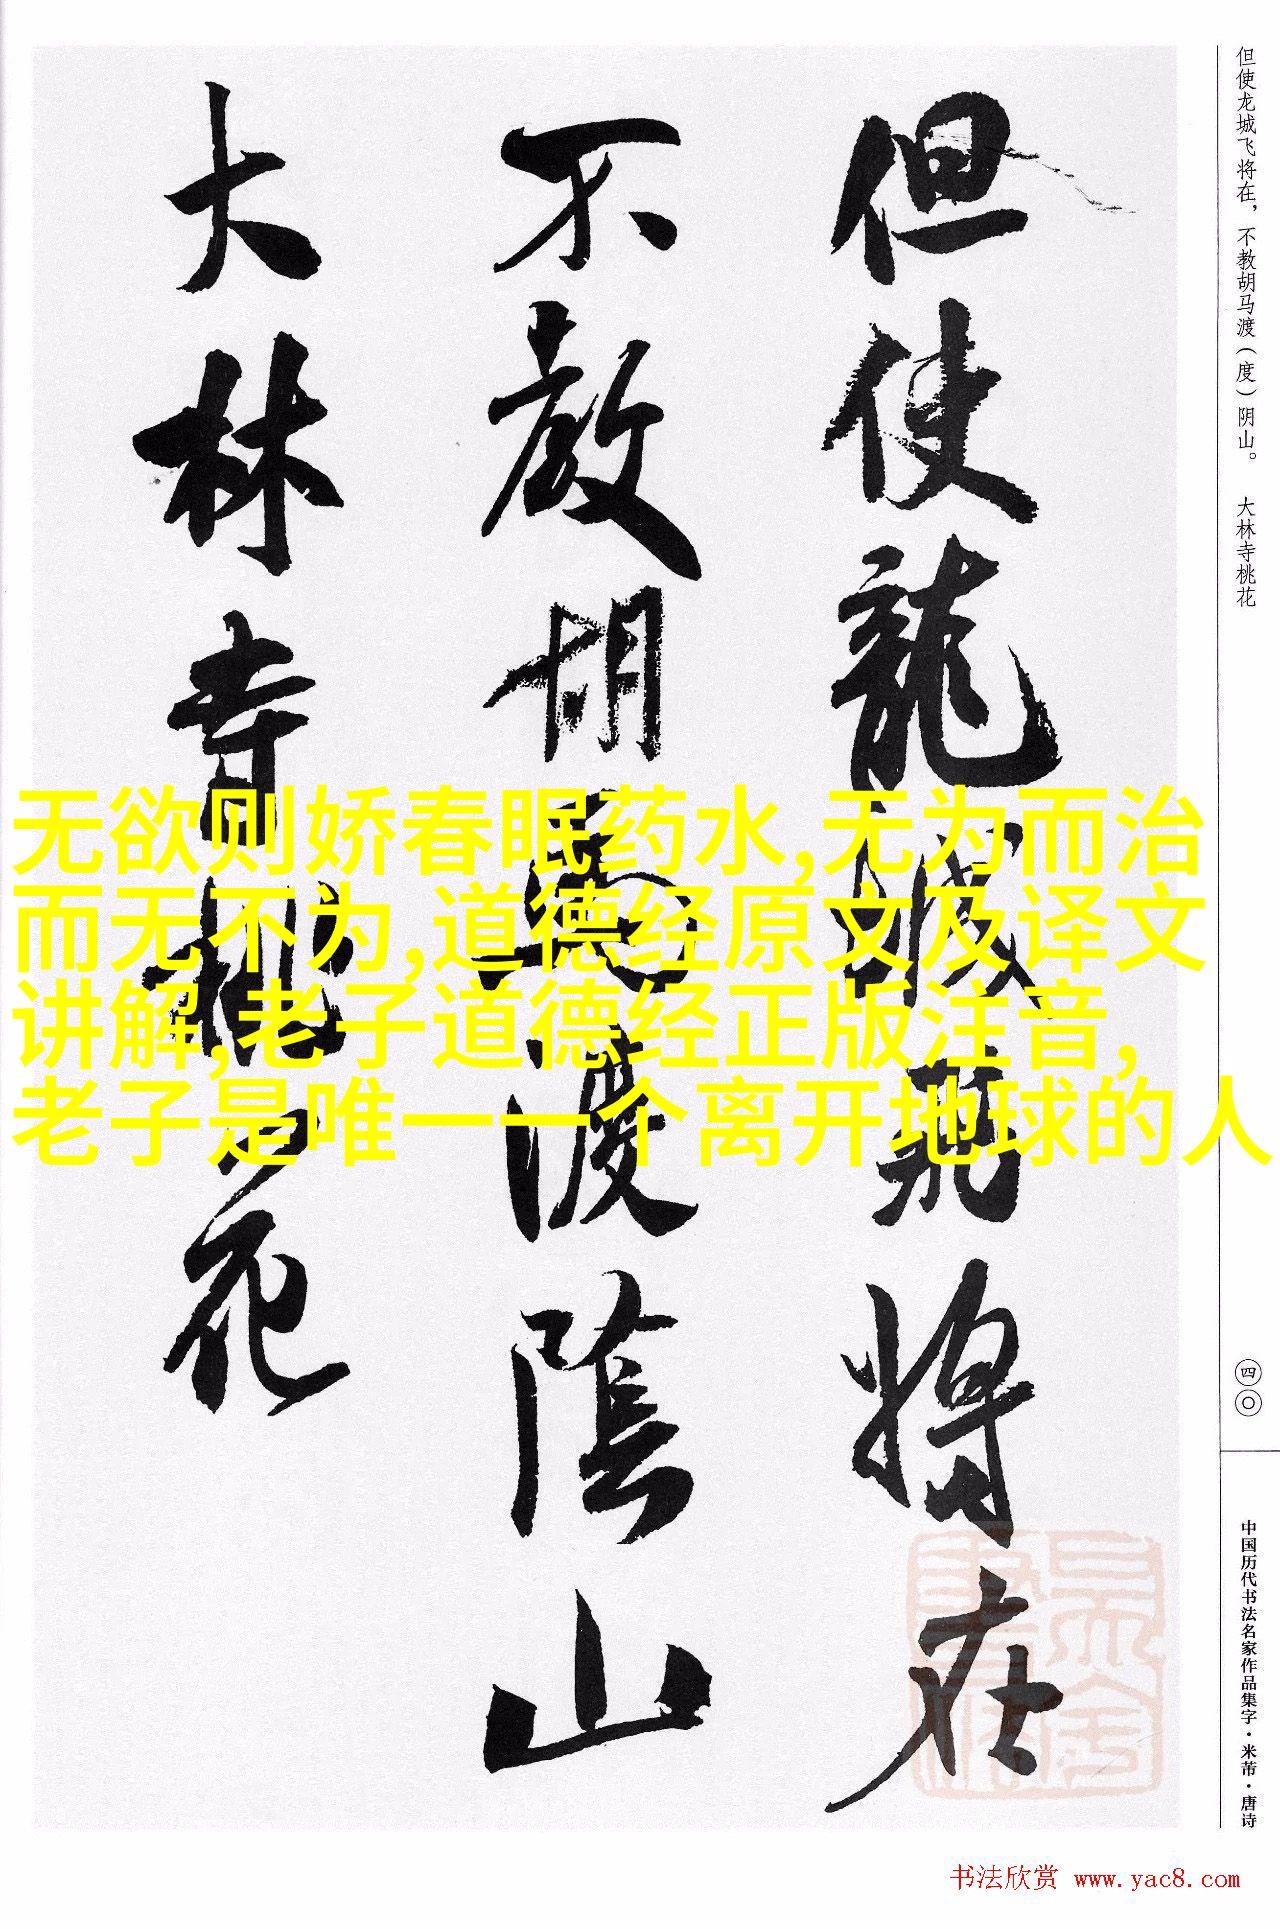 但使龙城飞将在，不教胡马渡（度）阴山。 大林寺桃花
但使龍城飛将在
不教胡馬渡陰山
大林寺桃花
无欲则娇春眠药水,无为而治
而无不为,道德经原文及译文
讲解,老子道德经正版注音,
老子是唯一一个离开地球的人
四〇
中国历代书法名家作品集字·米芾·唐诗
书法欣赏 www.yac8.com